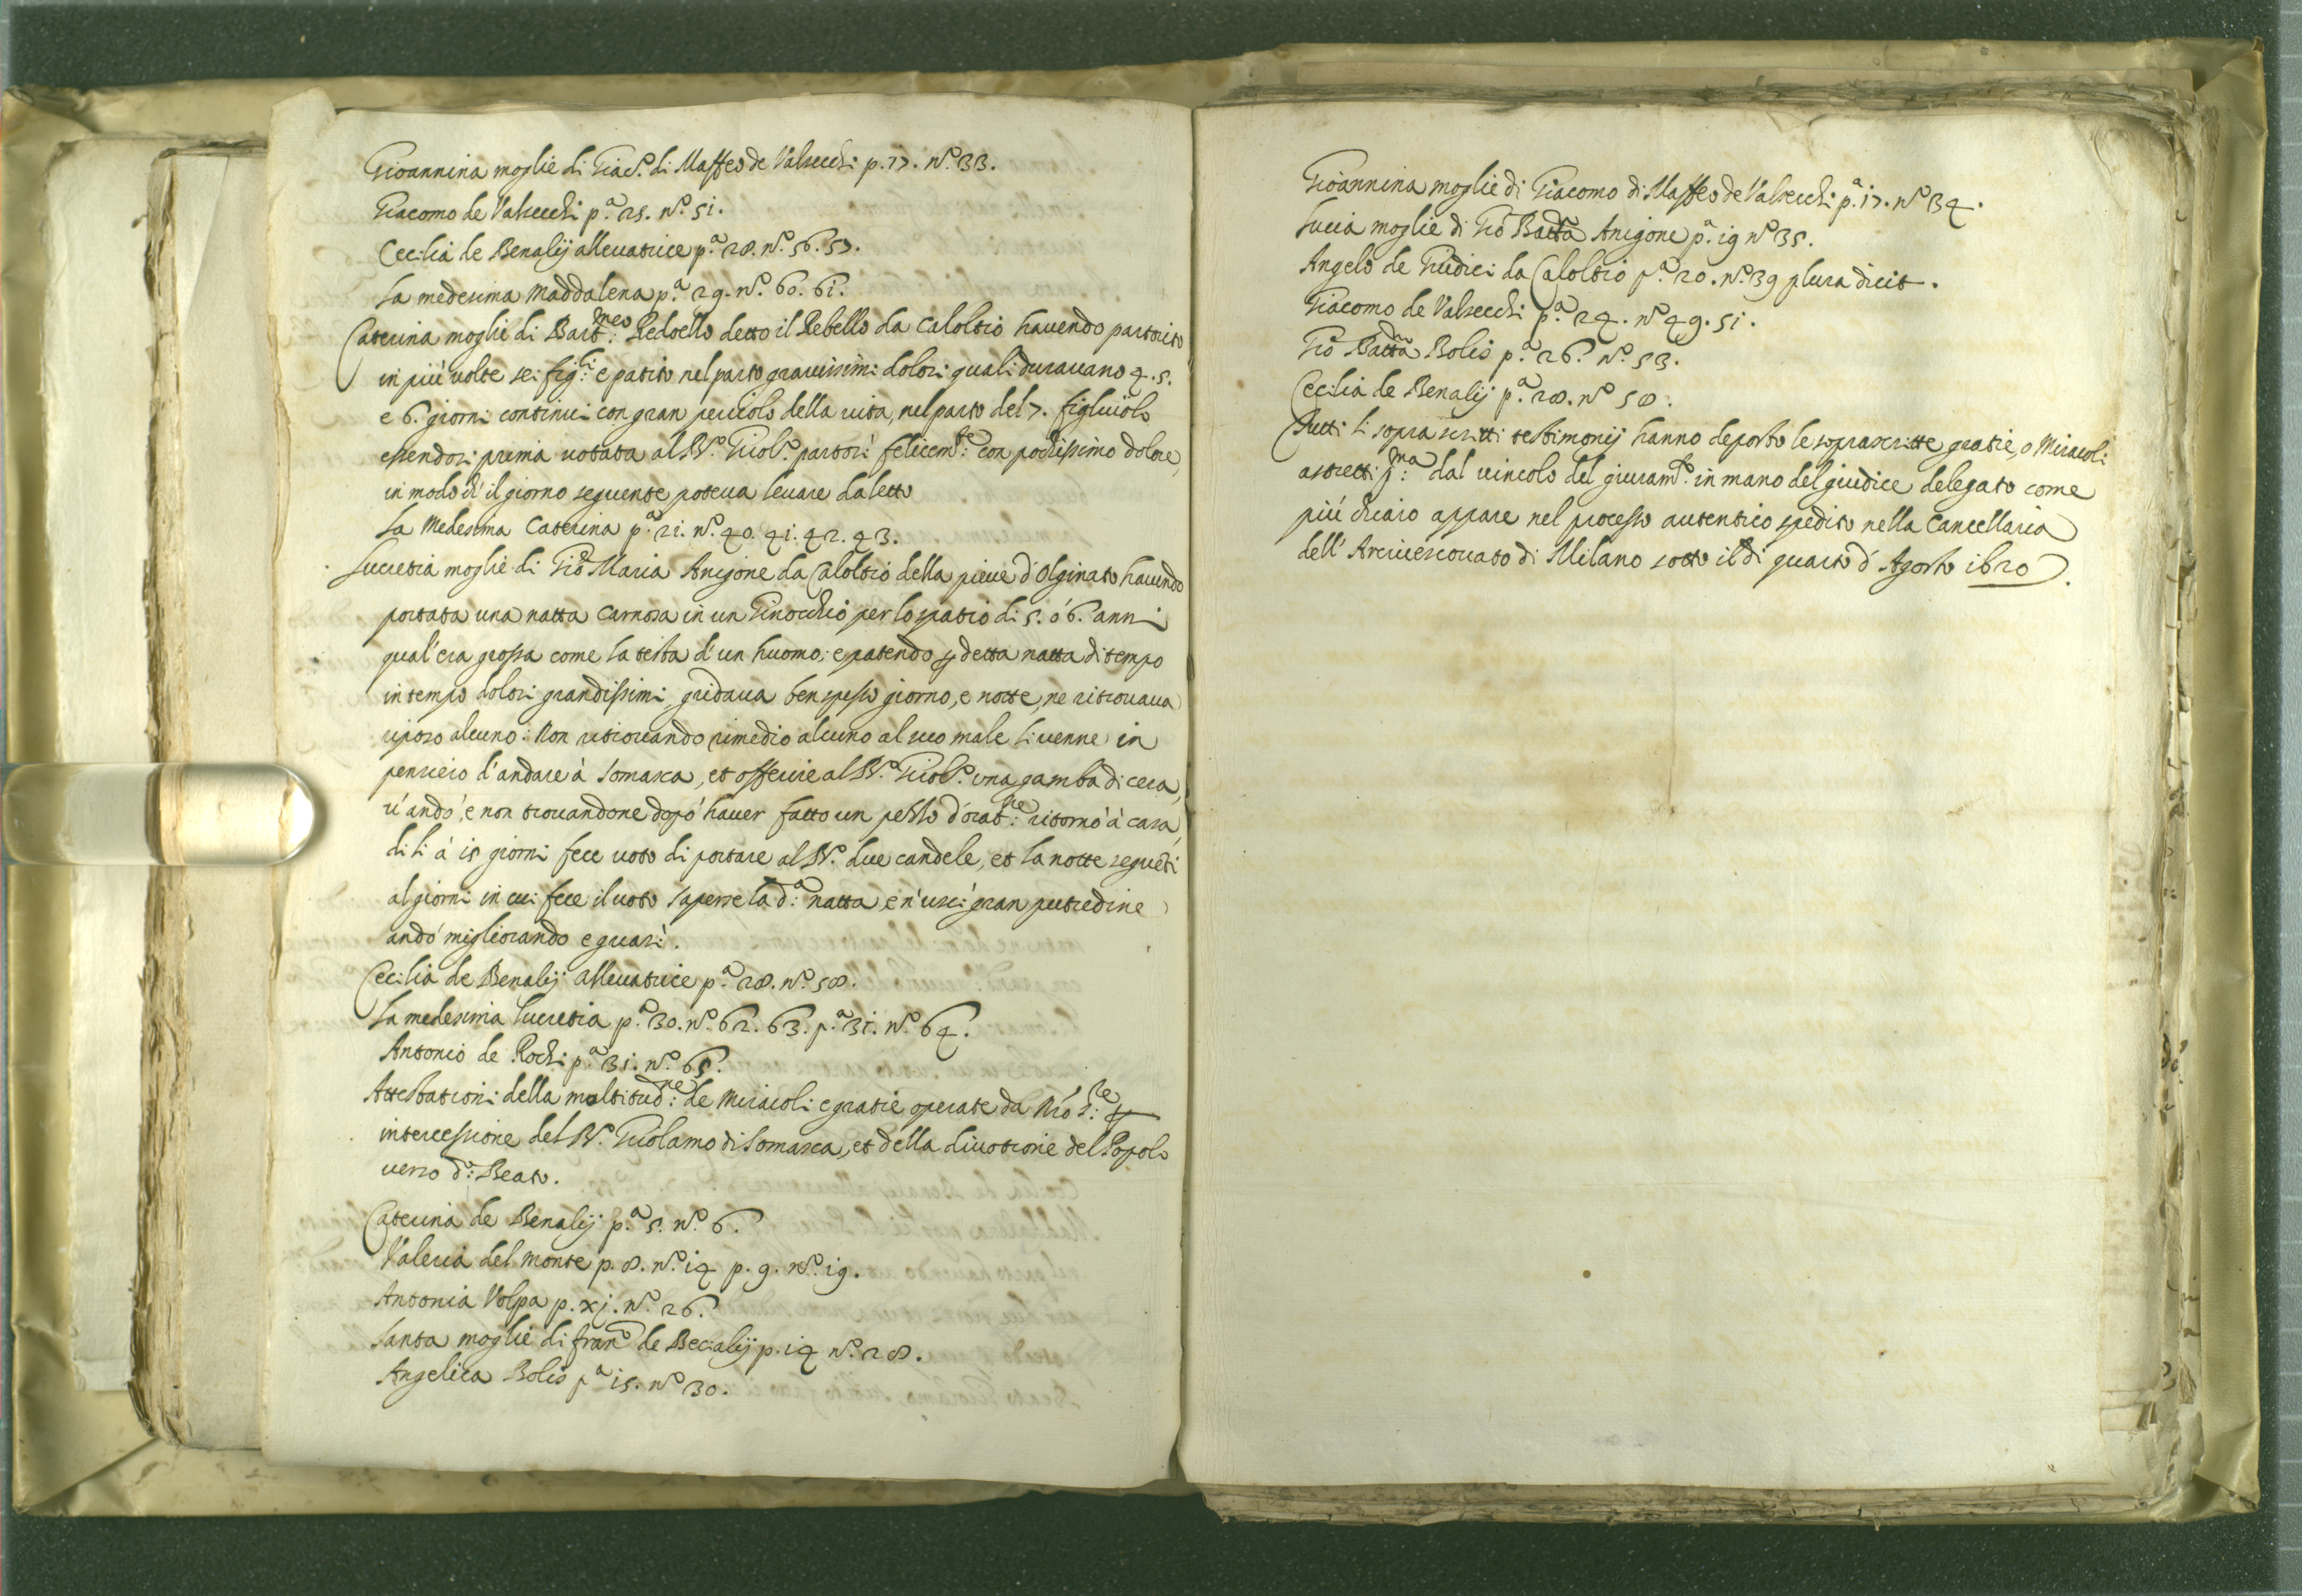 Gioannina moglie di Giac.º di Maffeo de Valsecchi p. 17. nº. 33.
Giacomo de Valsecchi p.ª 25. nº. 51.
Cecilia de Benalij allevatrice p.ª 28. nº. 56. 57.
La medesima Maddalena p.ª 29. nº. 60. 61.
Caterina moglie di Bart:meo Redoello detto il Rebello da Caloltio havendo partorito
in più volte sei fig:li e patito nel parto gravissimi dolori quali duravano 4. 5.
e 6. giorni continui con gran pericolo della vita, nel parto del 7. figluiolo
essendosi prima votata al B.º Girol.º partorì felicem:te con pochissimo dolore,
in modo ch' il giorno seguente poteva levare da letto
La Medesima Caterina p.ª 21. nº. 40. 41. 42. 43.
Lucretia moglie di Giõ Maria Anigone da Caloltio della pieve d'Olginato havendo
portata una natta carnosa in un Ginocchio per lo spatio di 5. ó 6. anni
qual' era grossa come la testa d'un huomo; e patendo p detta natta di tempo
in tempo dolori grandissimi, gridava ben spesso giorno, e notte, ne ritrovava
riposo alcuno. Non ritrovando rimedio alcuno al suo male li venne in
pensiero d'andare à Somasca, et offerire al B.º Girol.º una gamba di cera,
v'andò, e non trovandone dopó haver fatto un pezzo d'orat:ne ritornò à casa,
di li à 15 giorni fece voto di portare al B.º due candele, et la notte seguẽti
al giorni in cui fece il voto s'aperse la d:ª natta, e n'uscì gran putredine
andò migliorando e guarì.
Cecilia de Benalij allevatrice p.ª 28. nº. 58.
La medesima lucretia p.ª 30. nº. 62. 63. p.ª 31. nº. 64.
Antonio de Rochi p.ª 31. nº. 65.
Attestationi della moltitud:ne de Miracoli e gratie operate da Nró S:re p
intercessione del B.º Girolamo di Somasca, et della divotione del Popolo
verso d:º Beato.
Caterina de Benalij p.ª 5. nº. 6.
Valeria del Monte p. 8. nº. 14 p. 9. nº. 19.
Antonia Volpa p. xj. nº. 26.
Santa moglie di Franº de Becialij p. 14 nº. 28.
Angelica Bolis p.ª 15. nº 30.
Gioannina moglie di Giacomo di Maffeo de Valsecchi p.ª 17. nº 34.
Lucia moglie di Giõ Batta Anigone p.ª 19 nº 35.
Angelo de Giudici da Caloltio p.ª 20. nº. 39 plura dicit.
Giacomo de Valsecchi p.ª 24. nº 49. 51.
Giõ Batta Bolis p.ª 26. nº. 53.
Cecilia de Benalij p.ª 28. nº 58.
Tutti li soprascritti testimonij hanno deposto le soprascritte gratie, o Miracoli
astretti p:ma dal vincolo del giuram.to in mano del giudice delegato come
più chiaro appare nel processo autentico spedito nella Cancellaria
dell' Arcivescovato di Milano sotto il dì quarto d' Agosto 1620.